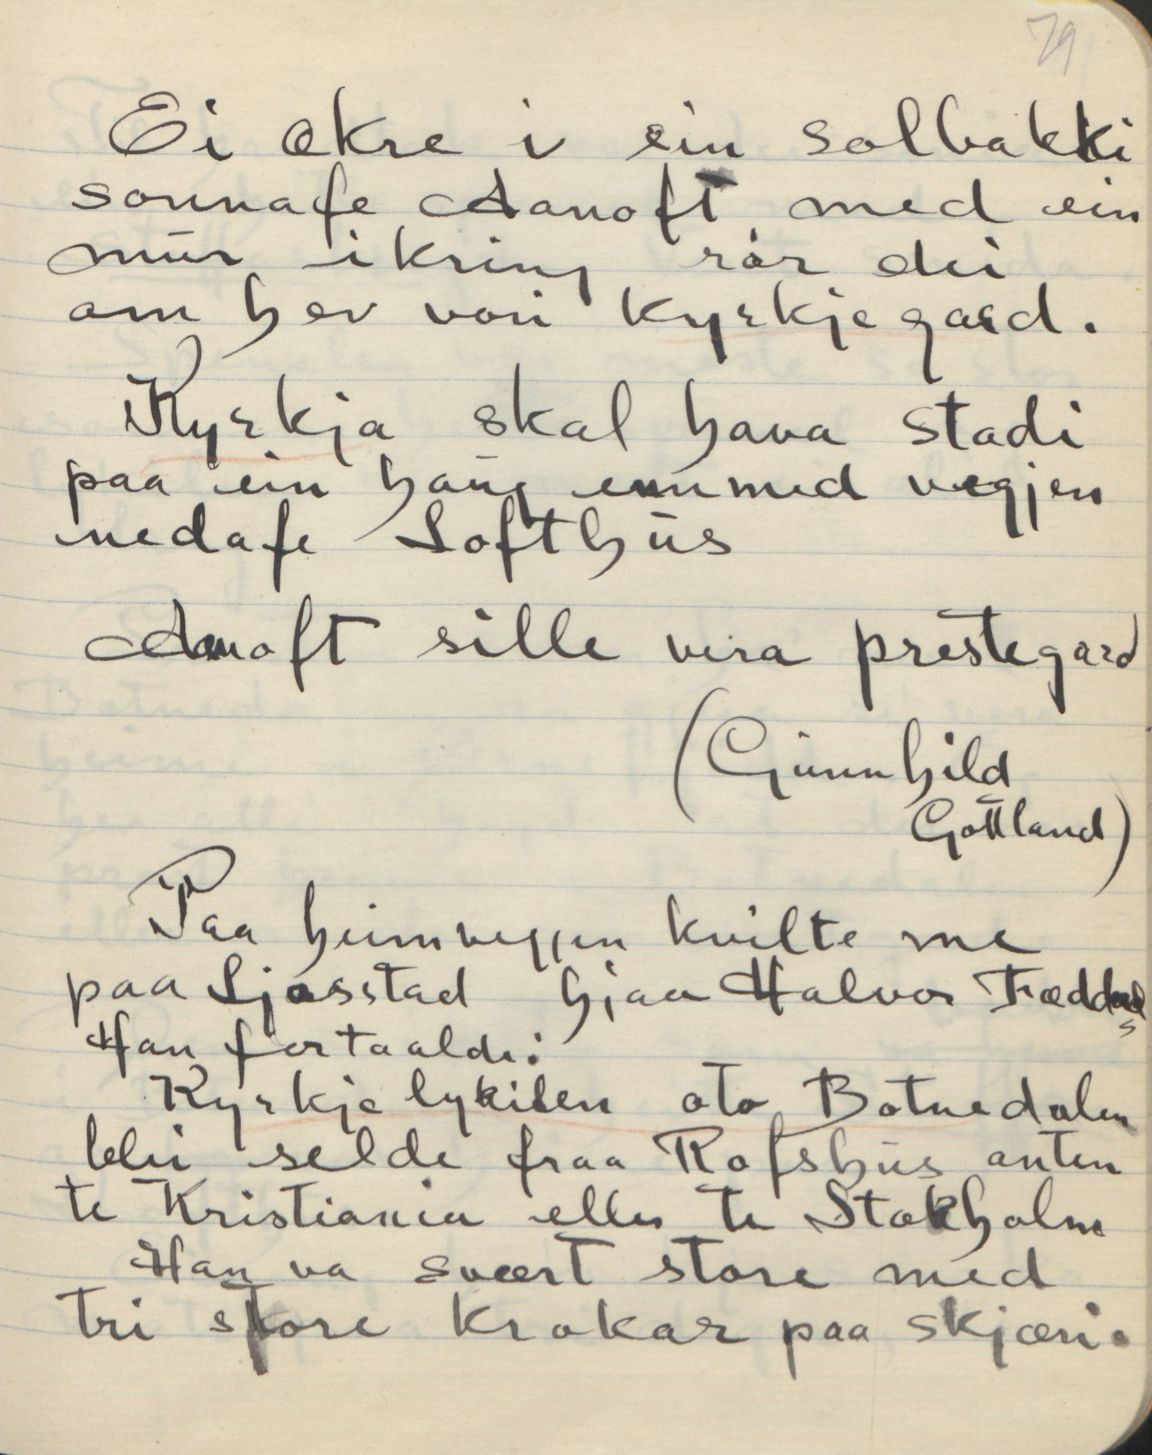 79
Ei ekre i ein solbakki
sonnafe Aanoft med ein
mur ikring rår dei
om hev vori kyrkjegard.
Kyrkja skal hava stadi
paa ein haug emmed vegjen
nedafe Lofthus
Aanoft sille vera prestegard
(Gunnhild
Gottland)
Paa heimvegjen kvilte me
paa Ljosstad hjaa Halvor
Han fortaalde:
Kyrkjelykilen oto Botnedalen
blei selde fraa Rofshus anten
te Kristiania eller te Stokholm
Han va svært store med
tri store krokar paa skjæri.